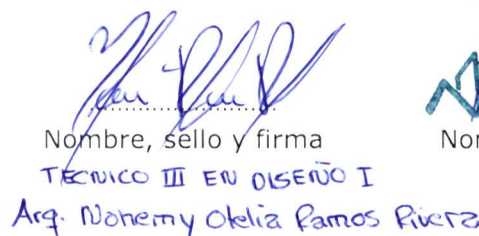 Nombre, sello y firma
Nom
TECNICO III EN DISEÑO I
Arq. Nohemy Otelia Ramos Rivera